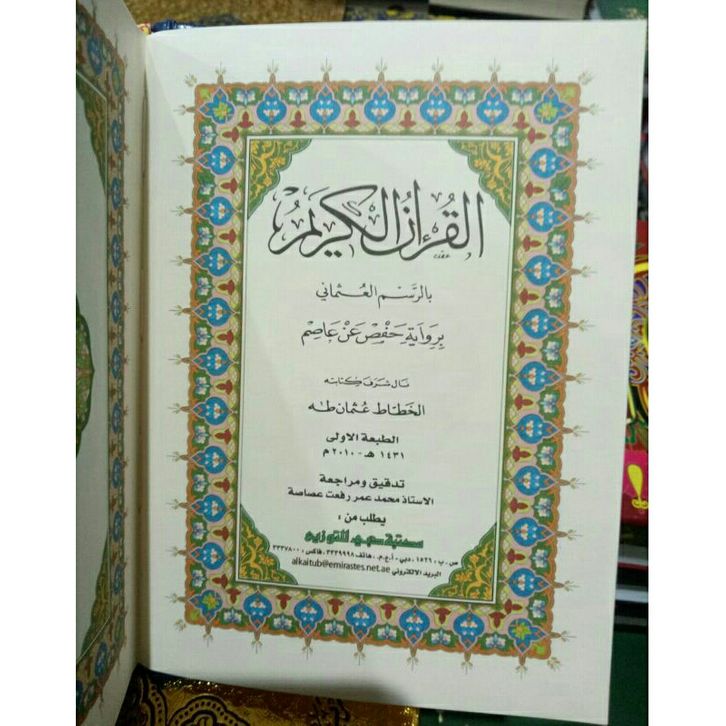 القُرْءَانُ الْكَرِيمُ
بالرَّسْمِ العُثماني
بِرِوَايَةِ حَفْصٍ عَنْ عَاصِمٍ
نال شرف كتابته
الخطاط عثمان طه
الطبعة الاولى
١٤٣١ هـ - ٢٠١٠ م
تدقيق ومراجعة
الاستاذ محمد عمر رفعت عصاصة
يطلب من :
مكتبة دبي للتوزيع
ص . ب : ١٥٢٦ ، دبي - أ.ع.م . هاتف : ٣٣٣٩٩٩٨ ، فاكس : ٣٣٣٧٨٠٠
البريد الالكتروني alkaitub@emirastes.net.ae